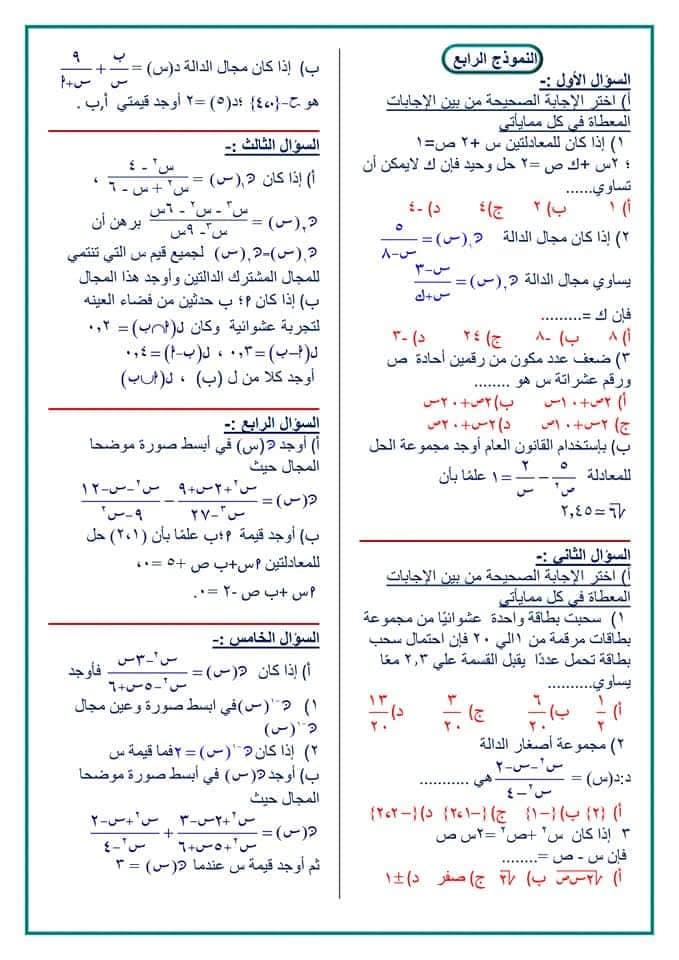 النموذج الرابع
السؤال الأول :-
أ) اختر الإجابة الصحيحة من بين الإجابات
المعطاة في كل ممايأتي
١) إذا كان للمعادلتين س +٢ ص=١
؛ ٢س +ك ص =٢ حل وحيد فإن ك لايمكن أن
تساوي......
أ) ١ ب) ٢ ج)٤ د) -٤
٢) إذا كان مجال الدالة ن١(س) = ٥/(س-٨)
يساوي مجال الدالة ن٢(س) = (س-٣)/(س+ك)
فإن ك =.........
أ) ٨ ب) -٨ ج) ٢٤ د) -٣
٣) ضعف عدد مكون من رقمين أحادة ص
ورقم عشراتة س هو ........
أ) ٢ص+١٠س ب)٢ص+٢٠س
ج) ٢س+١٠ص د)٢س+٢٠ص
ب) بإستخدام القانون العام أوجد مجموعة الحل
للمعادلة ٥/ص٢ - ٢/س =١ علمًا بأن
√٦ ≃ ٢,٤٥
السؤال الثاني :-
أ) اختر الإجابة الصحيحة من بين الإجابات
المعطاة في كل ممايأتي
١) سحبت بطاقة واحدة عشوائيًا من مجموعة
بطاقات مرقمة من ١الي ٢٠ فإن احتمال سحب
بطاقة تحمل عددًا يقبل القسمة علي ٢,٣ معًا
يساوي..........
أ) ١/٢ ب) ٦/٢٠ ج) ٣/٢٠ د) ١٣/٢٠
٢) مجموعة أصغار الدالة
د:د(س) = (س٢-س-٢)/(س٢-٤) هي ..........
أ) {٢} ب) {-١} ج) {-٢،١} د) {-٢،٢}
٣ إذا كان س٢ +ص٢ =٢س ص
فإن س - ص =........
أ) √٢س ص ب) √٢ ج) صفر د)±١
ب) إذا كان مجال الدالة د(س) = ب/س + ٩/(س+أ)
هو ح-{٤،٠} ؛د(٥) =٢ أوجد قيمتي أ,ب .
السؤال الثالث :-
أ) إذا كان ن١(س) = (س٢ - ٤)/(س٢ + س - ٦) ،
ن٢(س) = (س٣ - س٢ - ٦س)/(س٣- ٩س) برهن أن
ن١(س)=ن٢(س) لجميع قيم س التي تنتمي
للمجال المشترك الدالتين وأوجد هذا المجال
ب) إذا كان أ؛ ب حدثين من فضاء العينه
لتجربة عشوائية وكان ل(أ∩ب)= ٠,٢
ل(أ-ب)= ٠,٣ ، ل(ب-أ)= ٠,٤
أوجد كلا من ل (ب) ، ل(أ∪ب)
السؤال الرابع :-
أ) أوجد ن(س) في أبسط صورة موضحا
المجال حيث
ن(س) = (س٢+٢س+٩)/(س٣-٢٧) - (س٢-س-١٢)/(٩-س٢)
ب) أوجد قيمة أ؛ب علمًا بأن (٢،١) حل
للمعادلتين أس+ب ص +٥ =٠،
أس +ب ص -٢ =٠.
السؤال الخامس :-
أ) إذا كان ن(س) = (س٢-٣س)/(س٢-٥س+٦) فأوجد
١) ن-١(س)في ابسط صورة وعين مجال
ن-١(س)
٢) إذا كان ن-١(س) =٢فما قيمة س
ب) أوجد ن(س) في أبسط صورة موضحا
المجال حيث
ن(س) = (س٢+٢س-٣)/(س٢+٥س+٦) + (س٢+س-٢)/(س٢-٤)
ثم أوجد قيمة س عندما ن(س) = ٣